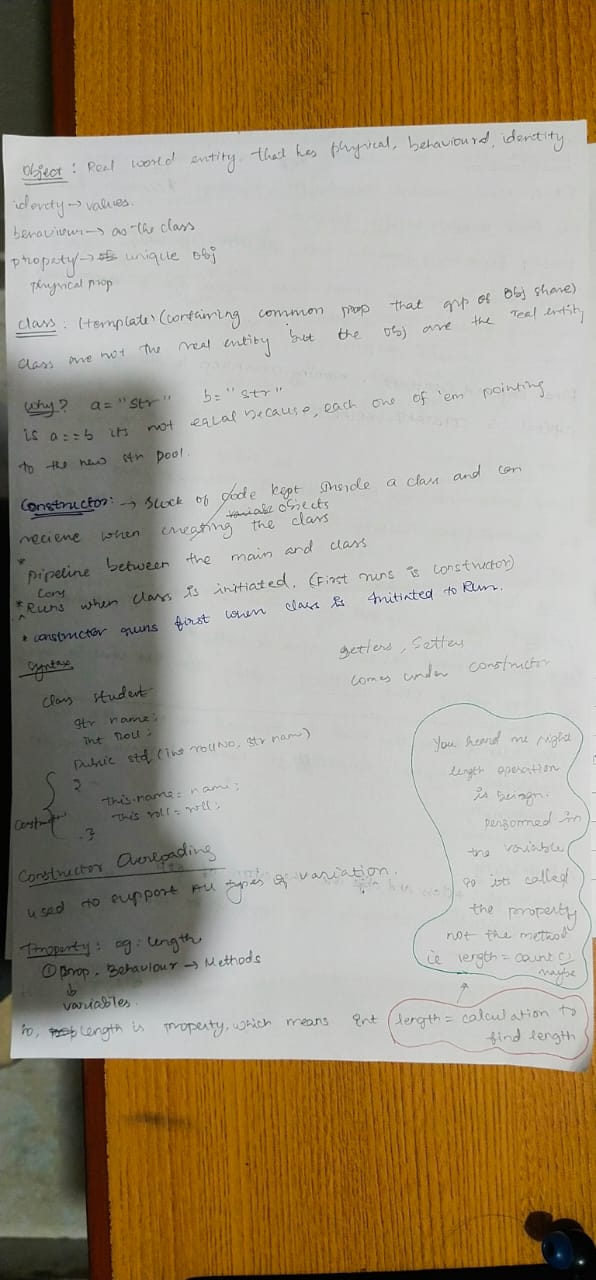 Object : Real world entity that has physical, behavioural, identity
identity → values.
behaviour → as the class
property → unique obj
physical prop
Class : (template) (containing common prop that grp of obj share)
class are not the real entity but the obj are the real entity
Why? a = "str" b = "str"
is a == b its not equal because, each one of 'em pointing
to the new str pool.
Constructor : → Block of code kept inside a class and can
variable objects
recieve when creating the class
* pipeline between the main and class
Cons
* Runs when class is initiated. (First runs is constructor)
* constructor runs first when class is initiated to Run.
Syntax
getters, Setters
comes under constructor
class student
str name;
int roll;
public std (int rollNo, str nam)
{
this.name = name;
this roll = roll;
}
Construct
Constructor Overloading
used to support all types of variation.
Property : eg : length
① prop. Behaviour → Methods
↓
variables.
so, length is property, which means int length = calculation to
find length
You heard me right
length operation
is being
performed in
the variable
so its called
the property
not the method
ie length = count ()
maybe